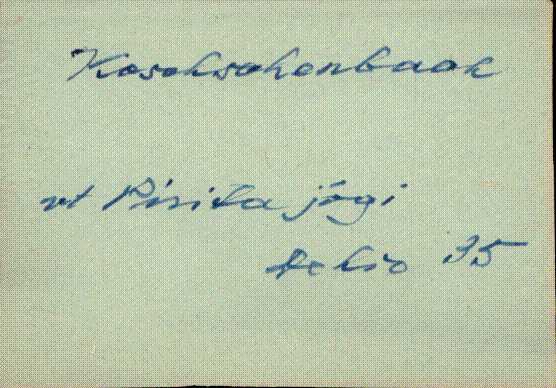 Koschschenbaak
vt Pirita jõgi
35